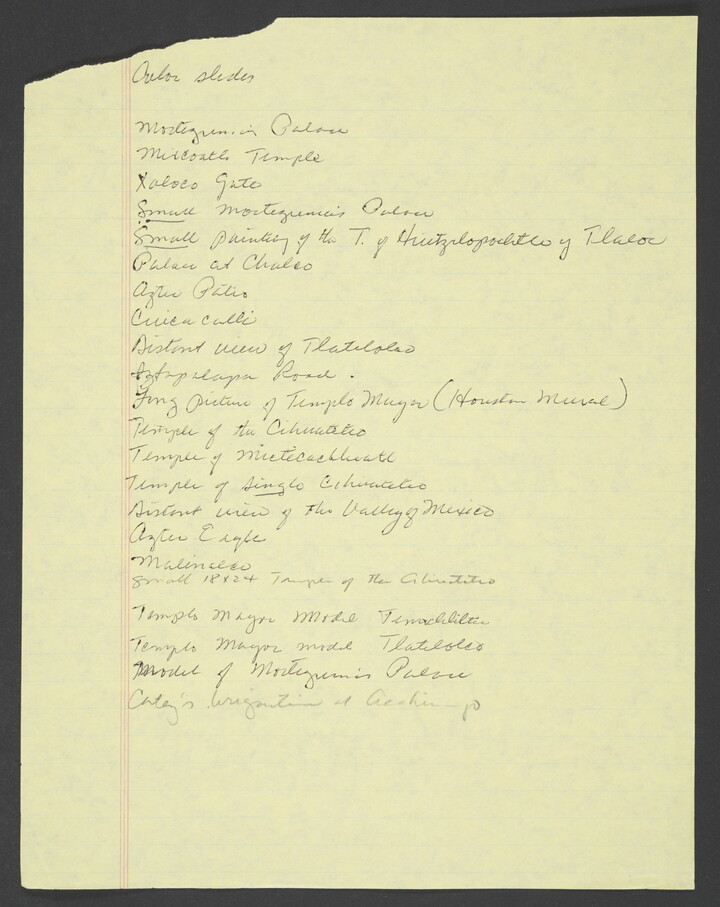 Color slides
Moctezuma's Palace
Mixcoatls Temple
Xoloco Gate
Small Moctezuma's Palace
Small painting of the T. of Huitzilopochtli y Tlaloc
Palace at Chalco
Aztec Patio
Cuicacalli
Distant view of Tlatelolco
Iztapalapa Road.
Long picture of Templo Mayor (Houston Mural)
Temple of the Cihuateteo
Temple of
Temple of single Cihuateteo
Distant view of the Valley of Mexico
Aztec Eagle
Malinalco
Small 18x24 Temple of the Cihuateteo
Templo Mayor Model
Templo Mayor model Tlatelolco
Model of Moctezuma's Palace
at